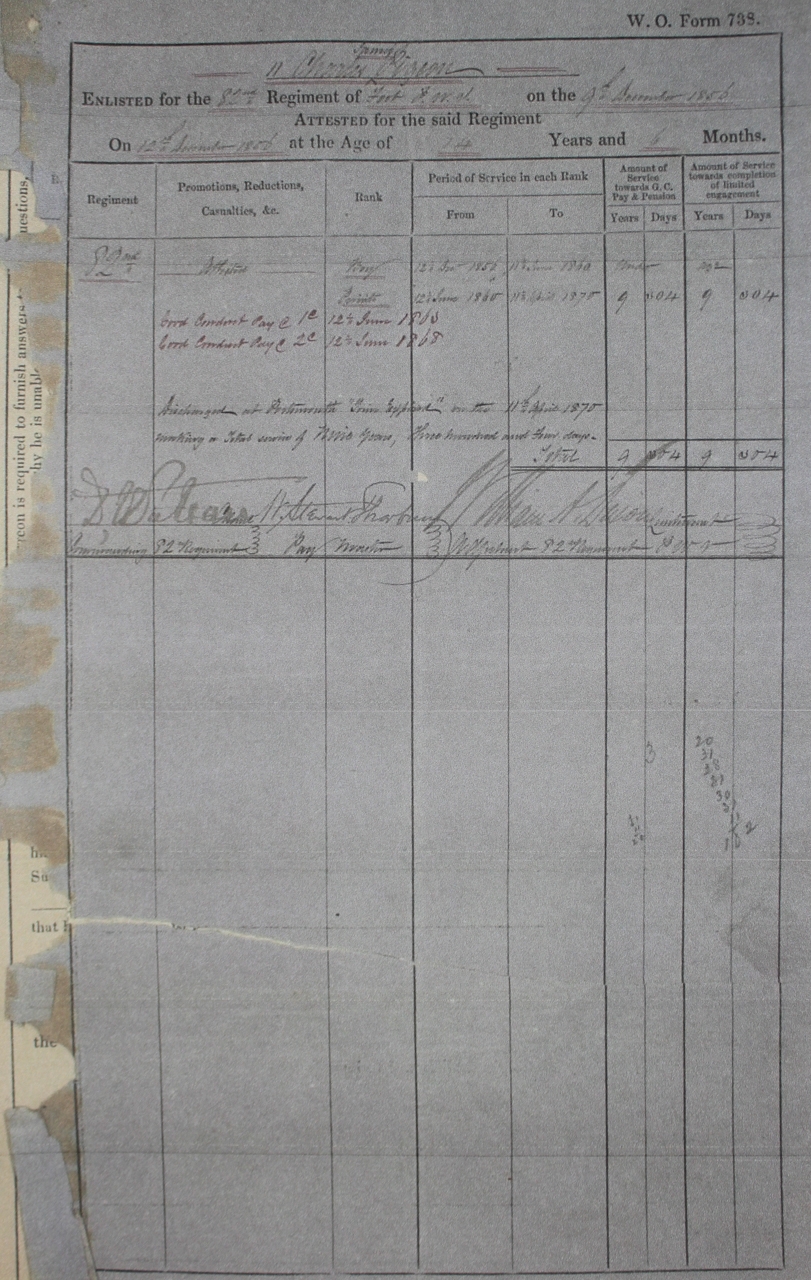 W. O. Form 738.
James
Charles
ENLISTED for the 82nd Regiment of Foot P.W.V. on the 9th December 1856
ATTESTED for the said Regiment
On 12th December 1856 at the Age of 14 Years and 6 Months.
Regiment
Promotions, Reductions, Casualties, &c.
Rank
Period of Service in each Rank
From
To
Amount of Service towards G. C. Pay & Pension
Years Days
Amount of Service towards completion of limited engagement
Years Days
82nd Attested Boy 12th Dec 1856 11th June 1860 Under age
Private 12th June 1860 11th April 1870 9 304 9 304
Good Conduct Pay @ 1d 12th June 1863
Good Conduct Pay @ 2d 12th June 1868
Discharged at Portsmouth on the 11th April 1870
making a Total service of Nine Years, three hundred and four days.
Total 9 304 9 304
William
Commanding 82 Regiment Pay Master Adjutant 82 Regiment
uestions,
is required to furnish answers
hy he is unable
3
20
31
28
31
30
31
2
Su
that
the